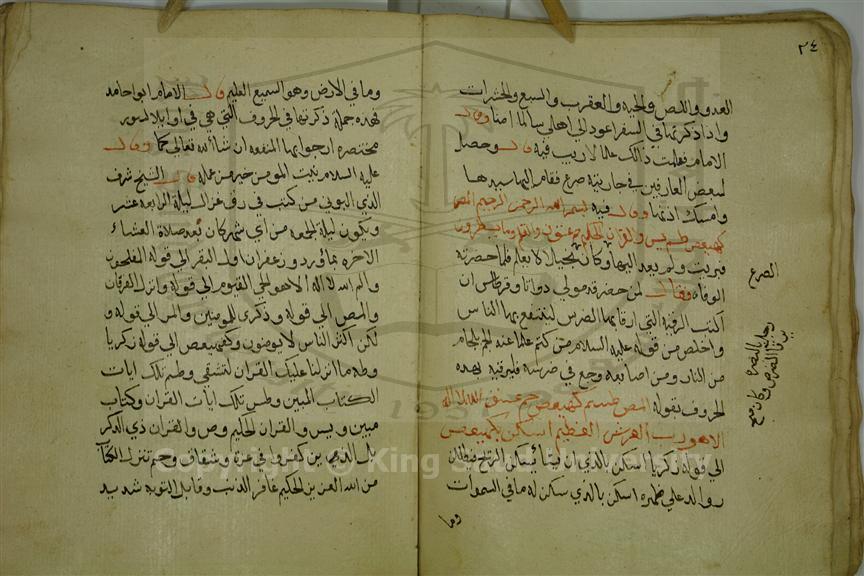 ٢٤
العدو واللص والحيه والعقرب والسبع والحشرات
واذا ذكرتها في السفر اعود الى اهلى سالما امنا وقال
الامام فعلمت ذالك علما لا ريب فيه قال وحصل
لبعض العارفين في جاريته صرع فقام اليها سيدها
وامسك اذنها وقال فيه بسم الله الرحمن الرحيم المص
كهيعص طسم يس والقران الحكيم حم عسق ن والقلم وما يسطرون
فبريت ولم يعد اليها وكان بخيل لا يعلم فلما حضرته
الوفاه وقال لمن حضر قدمولى دواتا وقرطاس ان
اكتب الرقيه التي ارقا بها الضرس لينتفع بها الناس
واخلص من قوله عليه السلام من كتم علما عنده الجم بلجام
من النار ومن اصابعه وجع في ضرسه فليرقيه بهده
الحروف بقوله المص طسم كهيعص حم عسق الله لا اله
الا هو رب العرش العظيم اسكن بكهيعص
الى قوله زكريا اسكن بالذي ان يشا يسكن الريح فيظللن
رواكد على ظهره اسكن بالذي سكن له ما في السموات
وما
الصرع
وما في الارض وهو السميع العليم قال الامام ابو احامد
فهده جملة ذكرتها في الحروف التي هي في اوايل السور
مختصره ارجوا بها المنفعه ان شا الله تعالى كما وقال
عليه السلام نيت المومن خير من عمله قال الشيخ شرف
الدي البوني من كتب في رق غزال ليلة الرابعه عشر
ويكون ليلة الجمعه من اي شهر كان بعد صلاة العشاء
الاخره بماورد وزعفران اول البقر الى قوله المفلحون
والم الله لا اله الا هو الحي القيوم الى قوله وانزل الفرقان
والمص الى قوله وذكرى للمومنين والمر الى قوله و
لكن اكثر الناس لا يومنون وكهيعص الى قوله زكريا
وطه ما انزلنا عليك القران لتشقى وطسم تلك ايات
الكتاب المبين وطس تلك ايات القران وكتاب
مبين ويس والقران الحكيم وص والقران ذي الذكر
بل الذين كفروا في عزة وشقاق وحم تنزيل الكتاب
من الله العزيز الحكيم غافر الذنب وقابل التوبه شديد
Copyright © King Saud University
1957